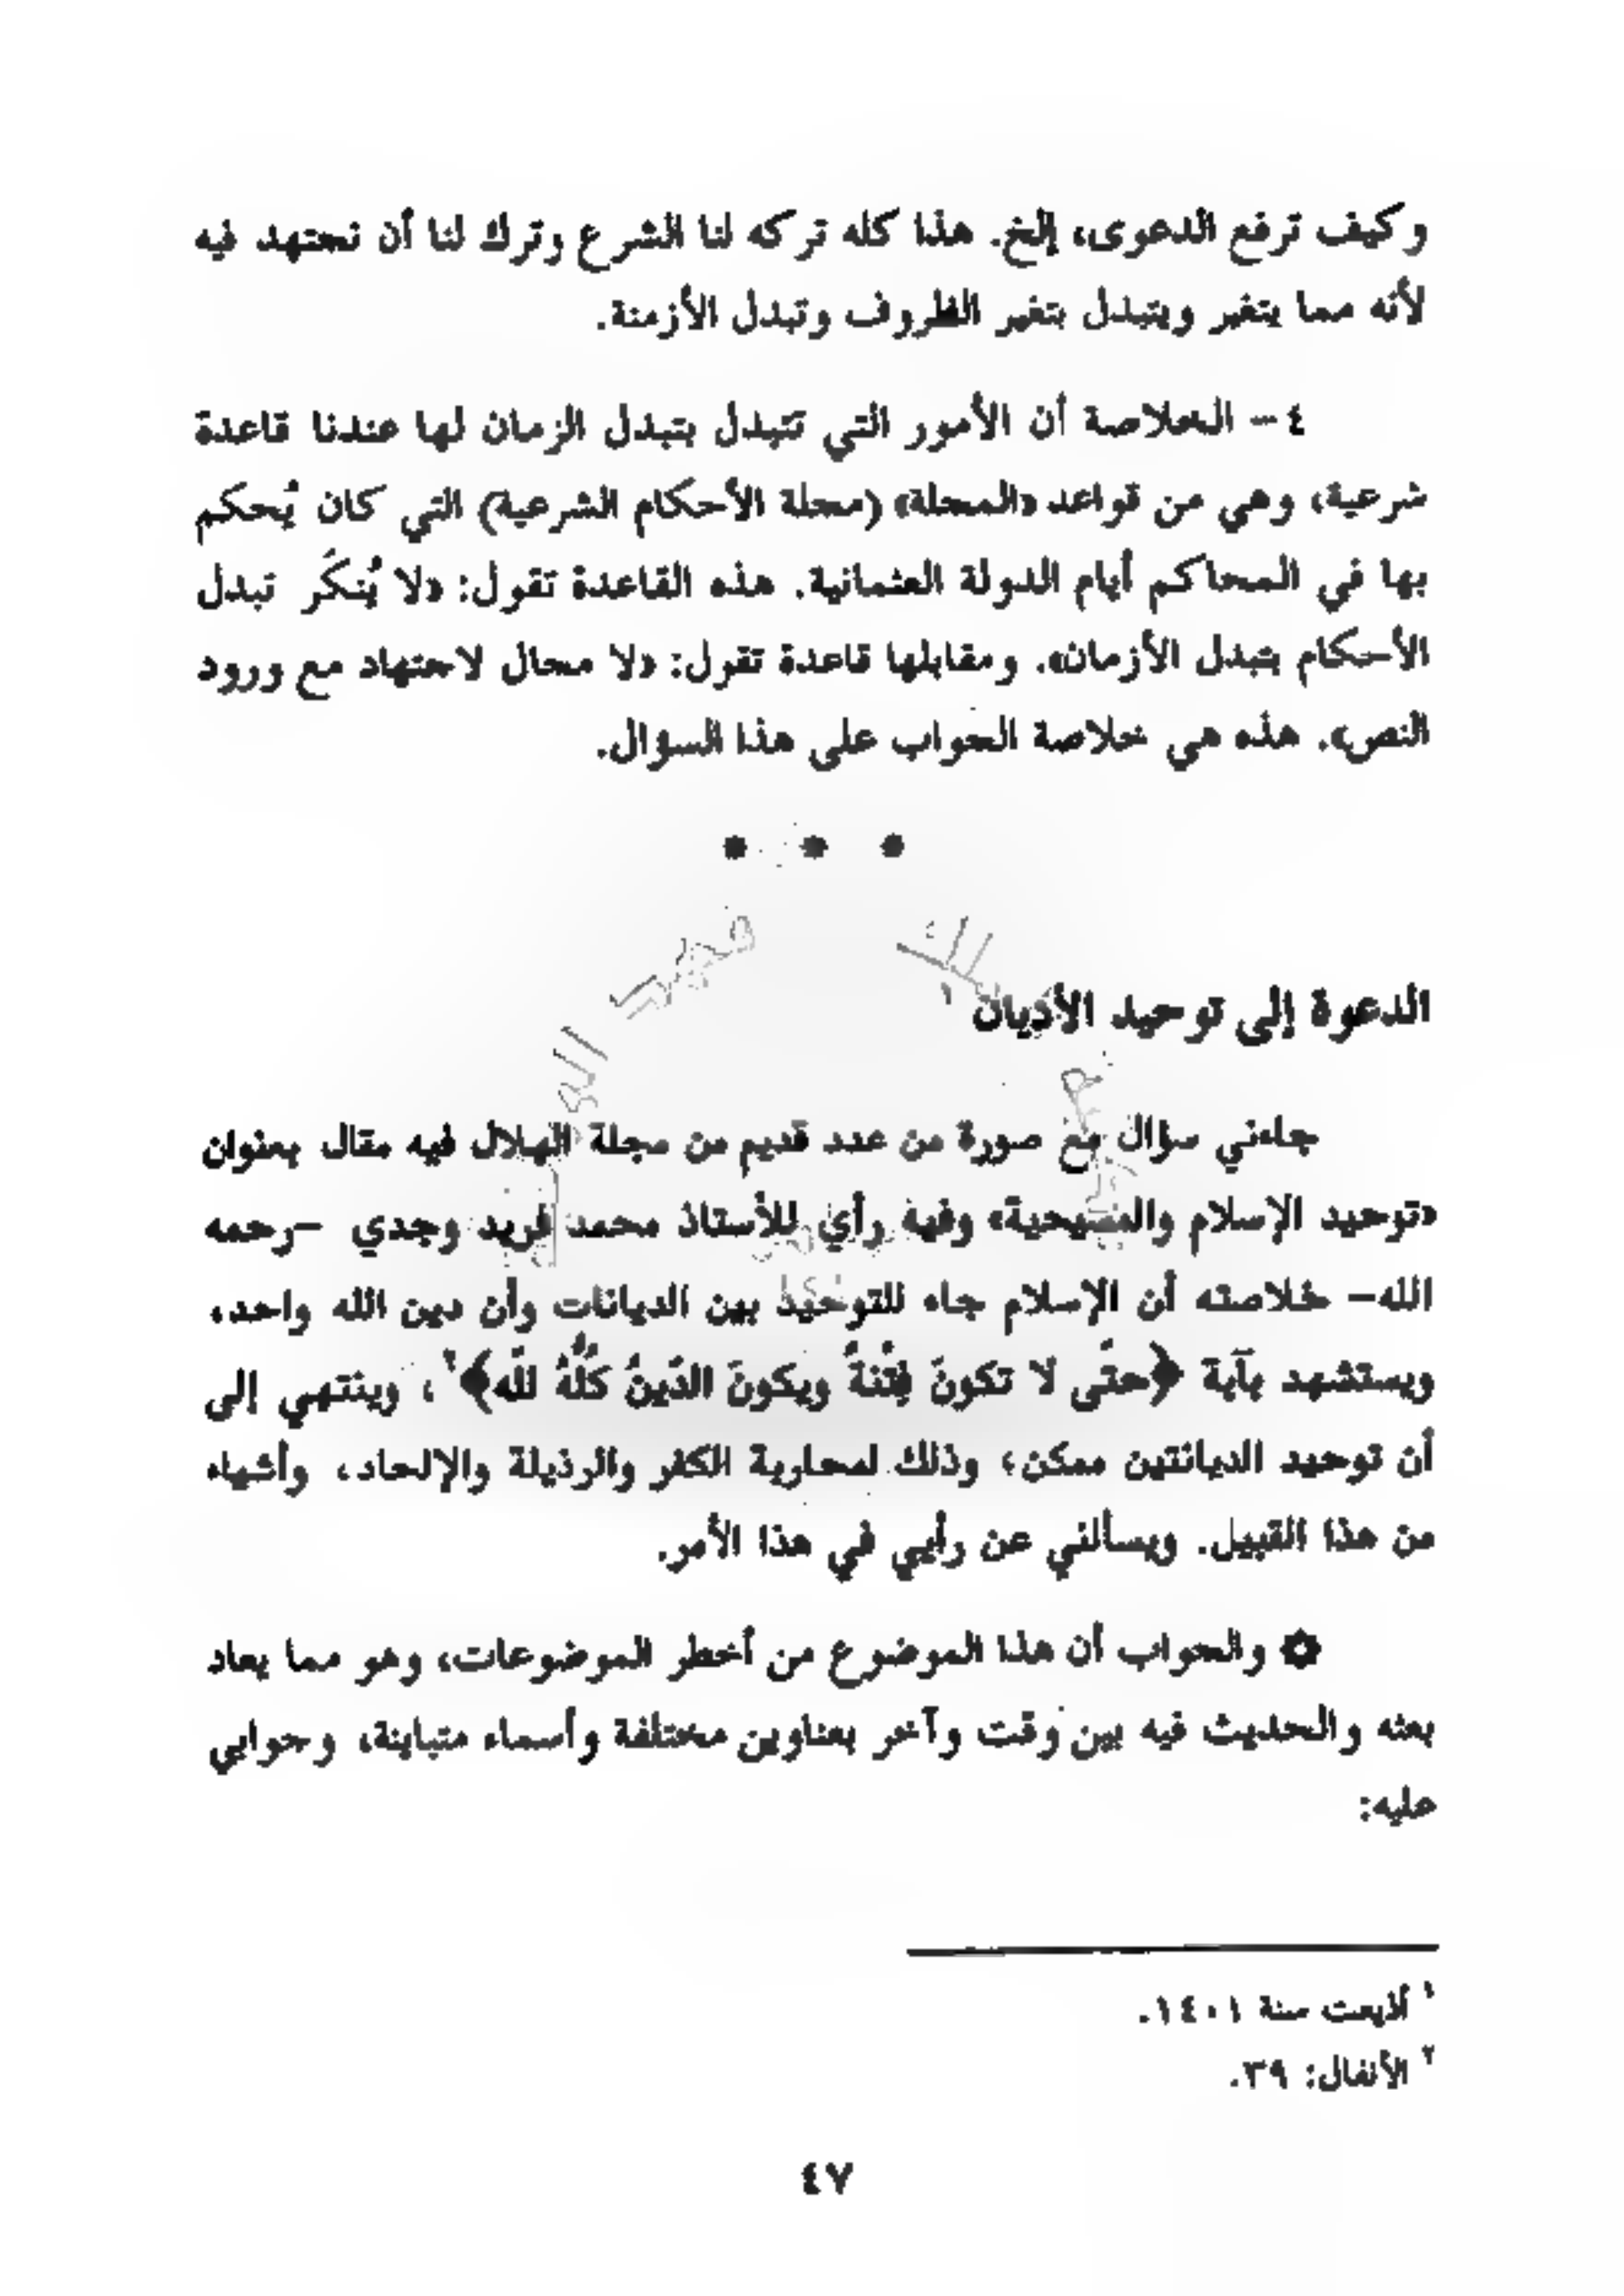 وكيف ترفع الدعوى، إلخ. هذا كله تركه لنا الشرع وترك لنا أن نجتهد فيه
لأنه مما يتغير ويتبدل بتغير الظروف وتبدل الأزمنة.
٤ - الخلاصة أن الأمور التي تتبدل بتبدل الزمان لها عندنا قاعدة
شرعية، وهي من قواعد «المجلة» (مجلة الأحكام الشرعية) التي كان يُحكم
بها في المحاكم أيام الدولة العثمانية. هذه القاعدة تقول: «لا يُنكَر تبدل
الأحكام بتبدل الأزمان». ومقابلها قاعدة تقول: «لا مجال لاجتهاد مع ورود
النص». هذه هي خلاصة الجواب على هذا السؤال.
• • •
الدعوة إلى توحيد الأديان ١
جاءني سؤال مع صورة من عدد قديم من مجلة الهلال فيه مقال بعنوان
«توحيد الإسلام والمسيحية» وفيه رأي للأستاذ محمد فريد وجدي -رحمه
الله- خلاصته أن الإسلام جاء للتوحيد بين الديانات وأن دين الله واحد،
ويستشهد بآية ﴿حتّى لا تكونَ فِتْنةٌ ويكونَ الدّينُ كلُّهُ للّه﴾٢، وينتهي إلى
أن توحيد الديانتين ممكن، وذلك لمحاربة الكفر والرذيلة والإلحاد، وأشياء
من هذا القبيل. ويسألني عن رأيي في هذا الأمر.
۞ والجواب أن هذا الموضوع من أخطر الموضوعات، وهو مما يعاد
بعثه والحديث فيه بين وقت وآخر بعناوين مختلفة وأسماء متباينة، وجوابي
عليه:
١ أذيعت سنة ١٤٠١.
٢ الأنفال: ٣٩.
٤٧